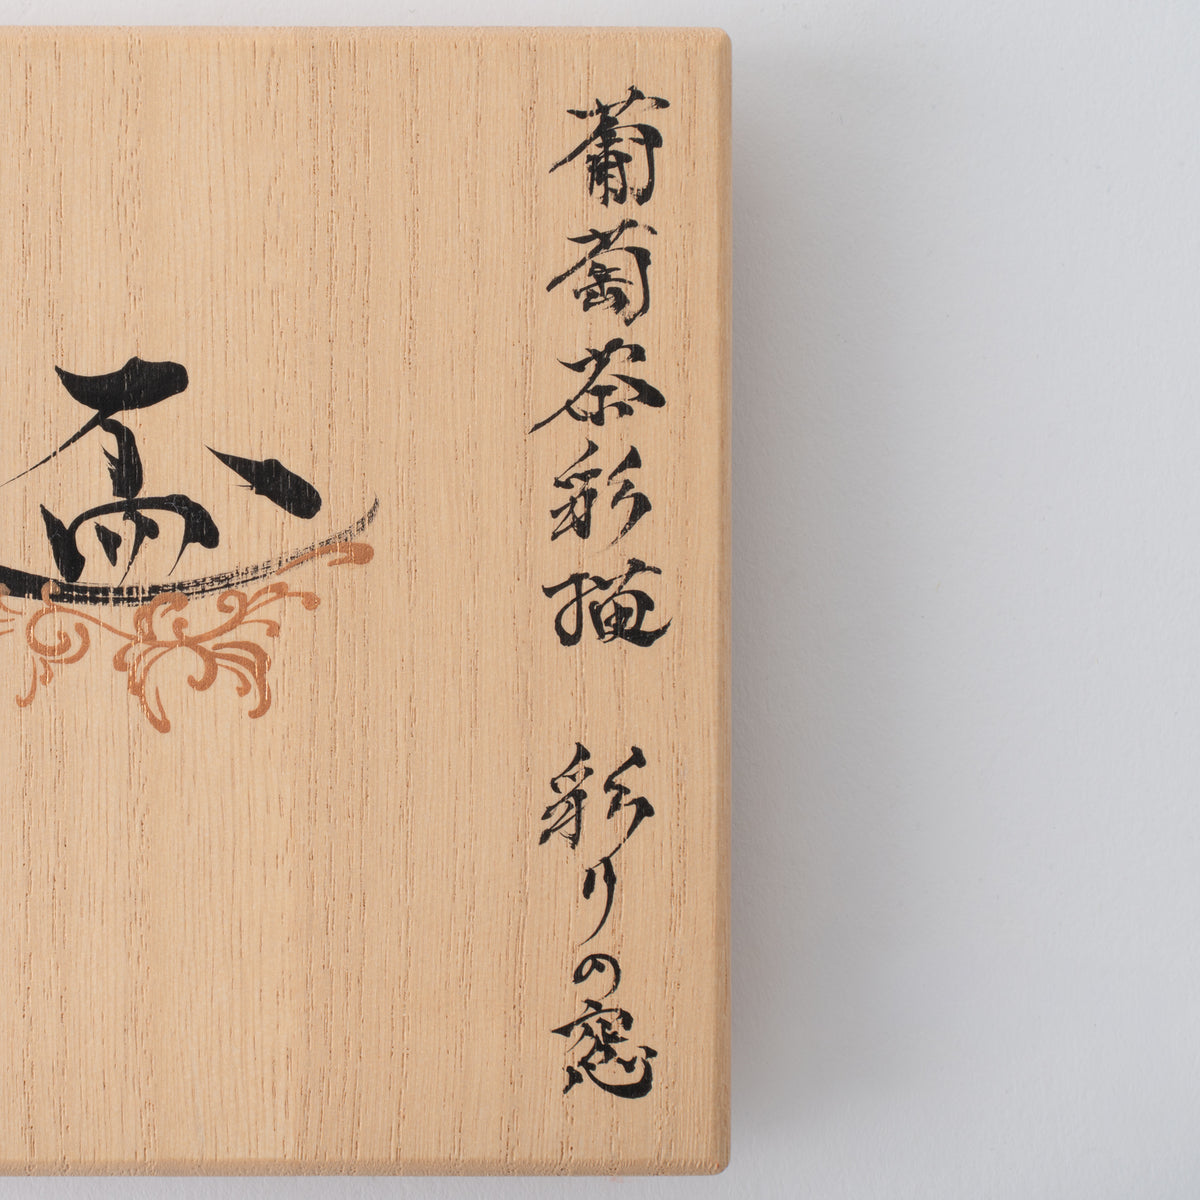 葡萄茶彩描 彩りの窓
盃